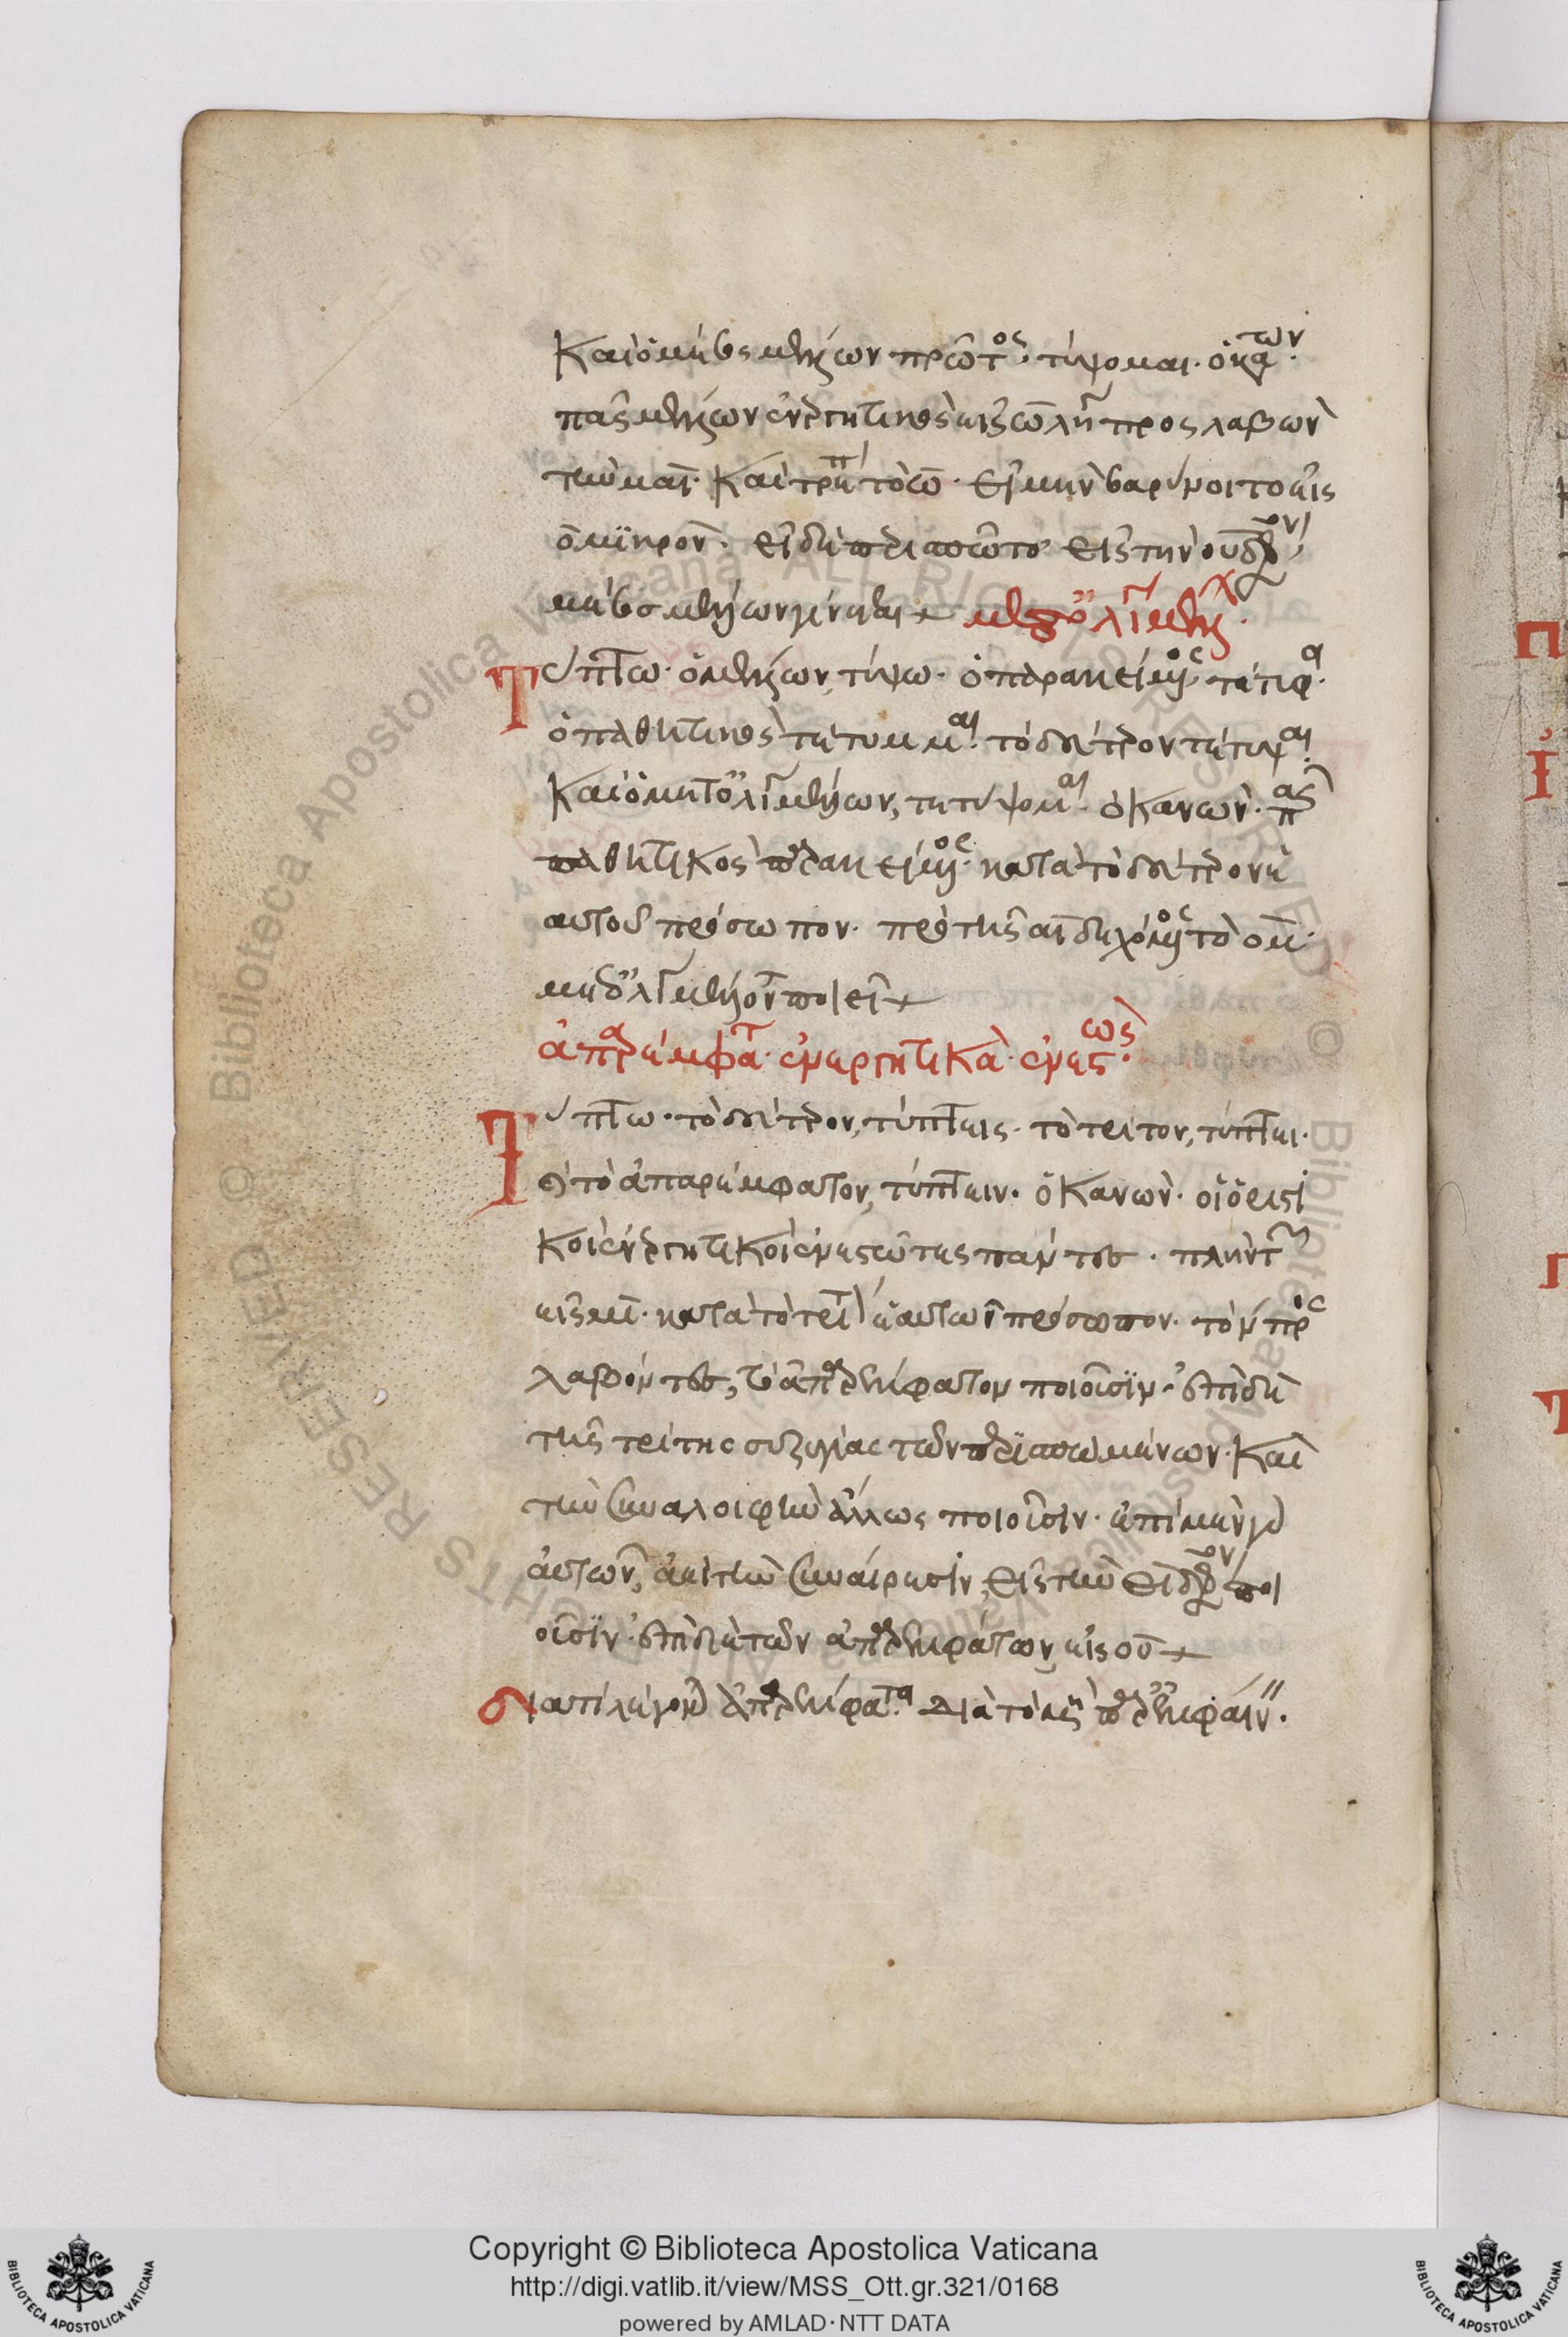 καὶ ὁ μέσος μέλλων πρῶτος· τύψομαι· ὁ κανών·
πᾶς μέλλων ἐνεργητικὸς εἰς ω λήγων προσλαβὼν
τὴν μαι· καὶ τρέπει τὸ ω· εἰ μὲν βαρύνοιτο εἰς
ο μικρόν· εἰ δὲ περισπῶτο εἰς τὴν ου δίφθογγον
μέσος μέλλων γίνεται μετ' ὀλίγον μέλλων·
Τύπτω· ὁ μέλλων, τύψω· ὁ παρακείμενος τέτυφα·
ὁ παθητικὸς τέτυμμαι· τὸ δεύτερον τέτυψαι·
καὶ ὁ μετ' ὀλίγον μέλλων, τετύψομαι· ὁ κανών· πᾶς
παθητικὸς παρακείμενος κατὰ τὸ δεύτερον
αὐτοῦ πρόσωπον· πρὸ τῆς αι δεχόμενος τὸ ομ·
μετ' ὀλίγον μέλλοντα ποιεῖ
ἀπαρέμφατα· ἐνεργητικὰ· ἐνεστῶτος·
Τύπτω· τὸ δεύτερον, τύπτεις· τὸ τρίτον, τύπτει·
καὶ τὸ ἀπαρέμφατον, τύπτειν· ὁ κανών· οἱ ὁριστι
κοὶ ἐνεργητικοὶ ἐνεστῶτες πάντες· πλὴν τῶν
εἰς μι· κατὰ τὸ τρίτον αὐτῶν πρόσωπον· τὸ ν προσ
λαβόντες, τὸ ἀπαρέμφατον ποιοῦσιν· ἐπὶ δὲ
τῆς τρίτης συζυγίας τῶν περισπωμένων· καὶ
τὴν συναλοιφὴν ἄλλως ποιοῦσιν· ἐπὶ μὲν γὰρ
αὐτῶν, ἀεὶ τὴν συναίρεσιν, εἰς τὴν οι δίφθογγον ποι
οῦσιν· ἐπὶ δὲ τῶν ἀπαρεμφάτων, εἰς ου
διατί λέγονται ἀπαρέμφατα· διὰ τὸ μὴ παρεμφαίνειν·
Copyright © Biblioteca Apostolica Vaticana
http://digi.vatlib.it/view/MSS_Ott.gr.321/0168
powered by AMLAD · NTT DATA
BIBLIOTECA APOSTOLICA VATICANA
BIBLIOTECA APOSTOLICA VATICANA